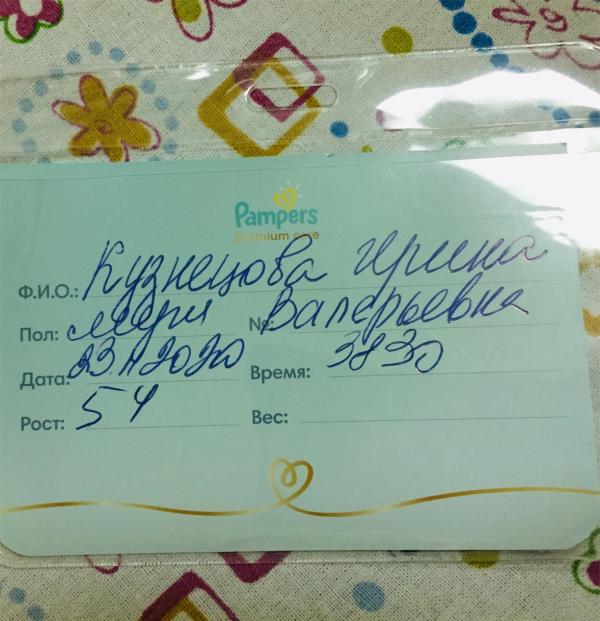 Pampers
premium care
Ф.И.О.: Кузнецова Ирина
Пол: №: Валерьевна
Дата: Время: 3830
Рост: 54 Вес: